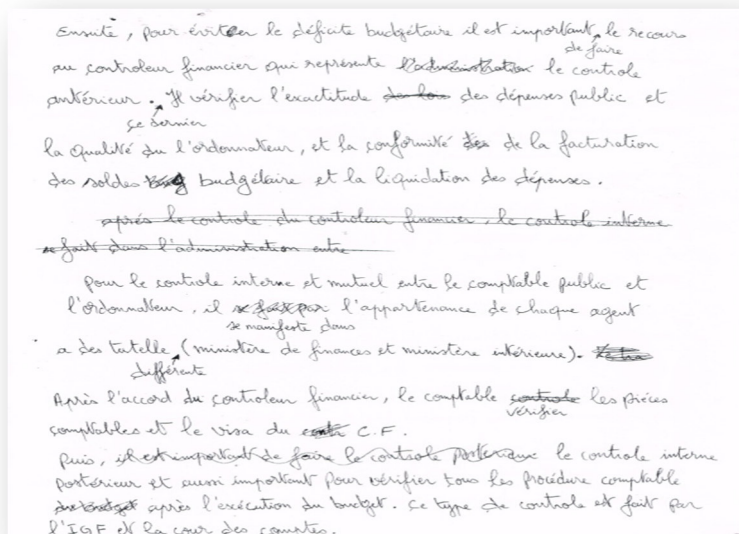 Ensuite, pour éviter le déficite budgétaire il est important de faire le recours
au controleur financier qui représente le controle
antérieur. ce dernier Il vérifier l'exactitude des dépenses public et
la qualité du l'ordonnateur, et la conformité de la facturation
des soldes budgétaire et la liquidation des dépenses.
après le controle du controleur financier, le controle interne
se fait dans l'administration entre
pour le controle interne et mutuel entre le comptable public et
l'ordonnateur, il se manifeste dans l'appartenance de chaque agent
a des tutelle différente (ministère de finances et ministère intérieure).
Après l'accord du controleur financier, le comptable vérifier les pièces
comptables et le visa du C.F.
Puis, il est important de faire le controle posterieur le controle interne
postérieur et aussi important pour vérifier tous les procédure comptable
après l'exécution du budget. ce type de controle et fait par
l'IGF et la cour des comptes.